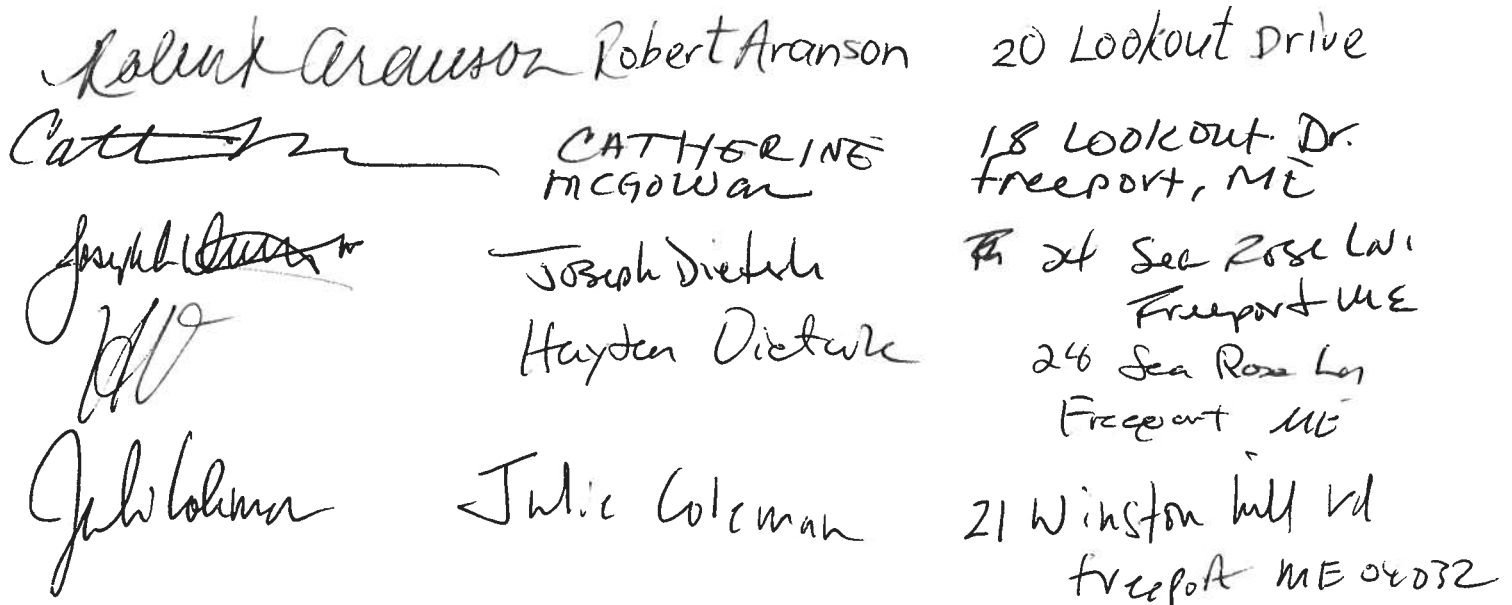 Robert Aranson Robert Aranson 20 Lookout Drive
CATHERINE 18 Lookout Dr.
MCGOWan Freeport, ME
Joseph Joseph Dieterle 24 Sea Rose Ln.
Freeport ME
Hayden Dieterle 28 Sea Rose Ln
Freeport ME
Julie Coleman Julie Coleman 21 Winston hill rd
freeport ME 04032